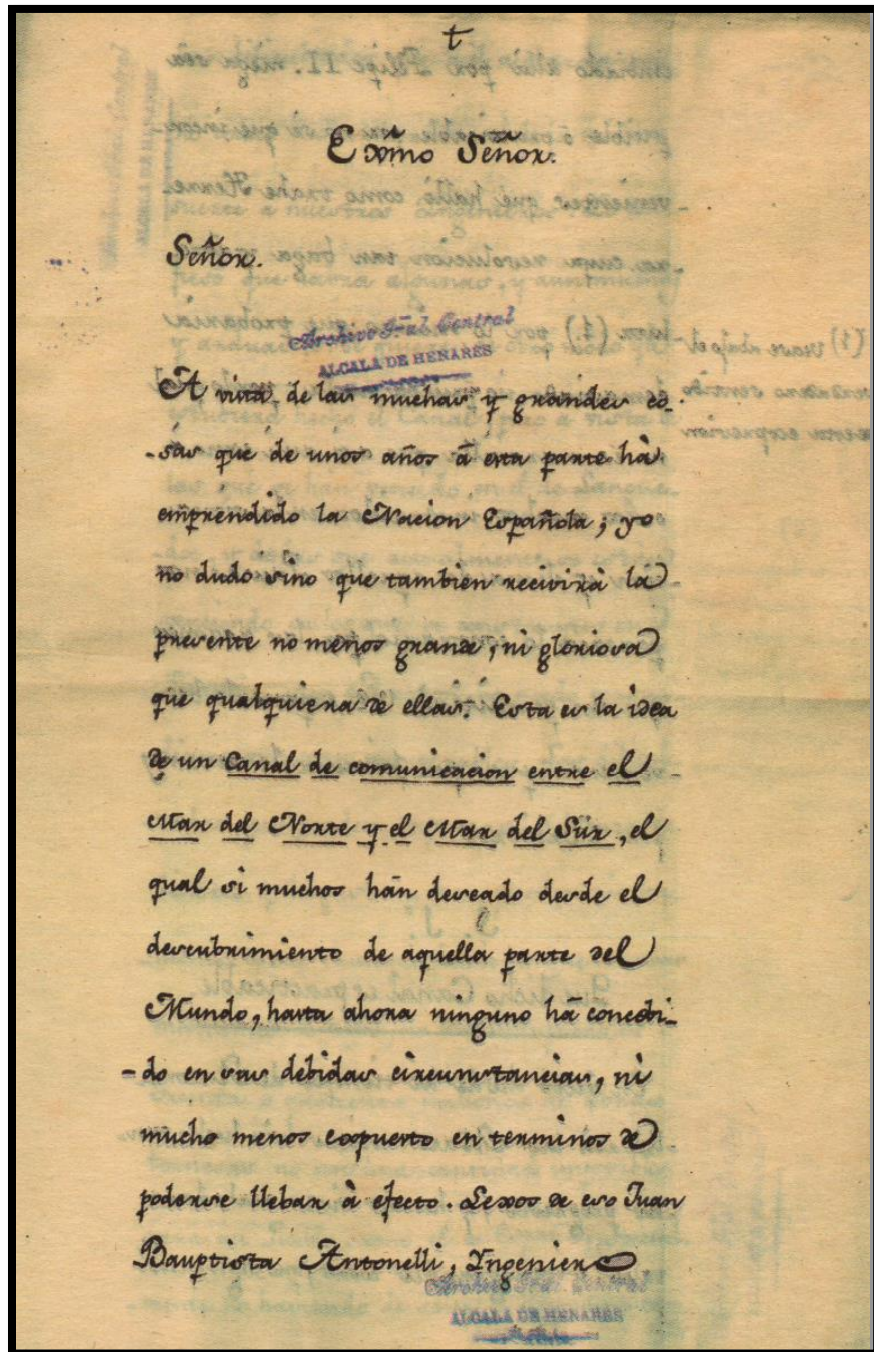 t
Exm̃o Señor.
Señor.
Archivo Gral. Central
ALCALA DE HENARES
A vista de las muchas y grandes co-
-sas que de unos años à esta parte hà
emprendido la Nacion Española; yo
no dudo sino que tambien recivirà la
presente no menos grande, ni gloriosa
que qualquiera de ellas. Esta es la idea
de un Canal de comunicacion entre el
Mar del Norte y el Mar del Sùr, el
qual si muchos hàn deseado desde el
descubrimiento de aquella parte del
Mundo, hasta ahora ninguno hà concebi-
-do en sus debidas circunstancias, ni
mucho menos expuesto en terminos de
poderse llebar à efecto. Lexos de eso Juan
Bauptista Antonelli, Yngeniero
Archivo Gral. Central
ALCALA DE HENARES